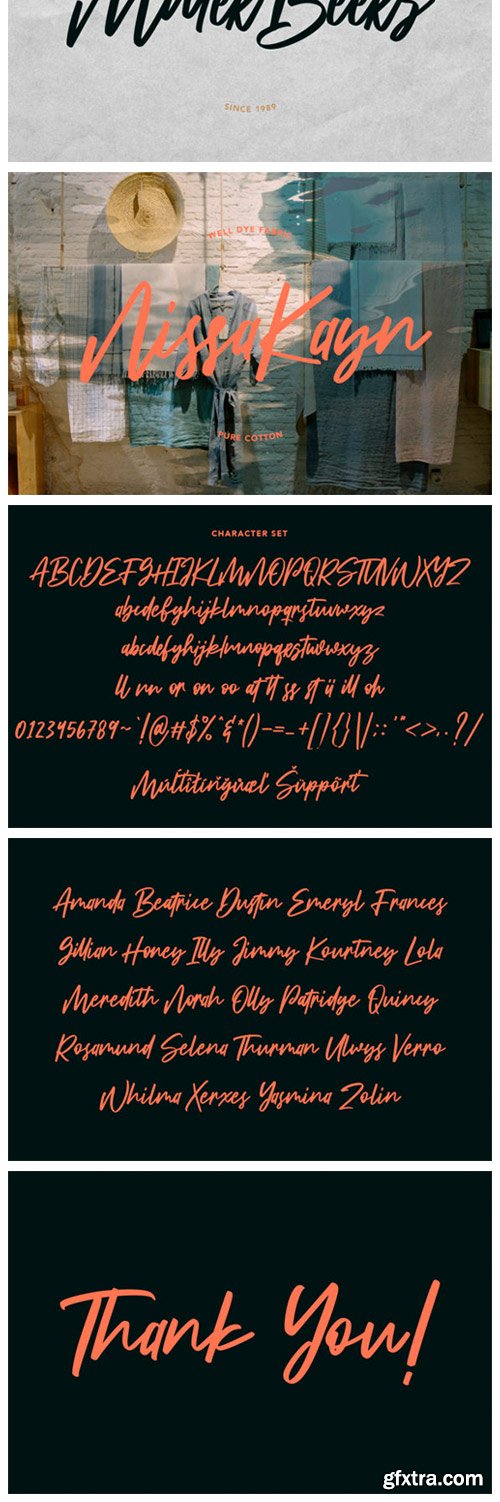 SINCE 1989
WELL DYE FABRIC
NissaKayn
PURE COTTON
CHARACTER SET
ABCDEFGHIJKLMNOPQRSTUVWXYZ
abcdefghijklmnopqrstuvwxyz
abcdefghijklmnopqrstuvwxyz
ll nn or on oo at tt ss st ii ill oh
0123456789~`!@#$%^&*()-=_+[]{}\|/;:'"<>,.?/
Amanda Beatrice Dustin Emeryl Frances
Gillian Honey Illy Jimmy Kourtney Lola
Meredith Norah Olly Patridge Quincy
Rosamund Selena Thurman Ulwys Verro
Whilma Xerxes Yasmina Zolin
Thank You!
gfxtra.com